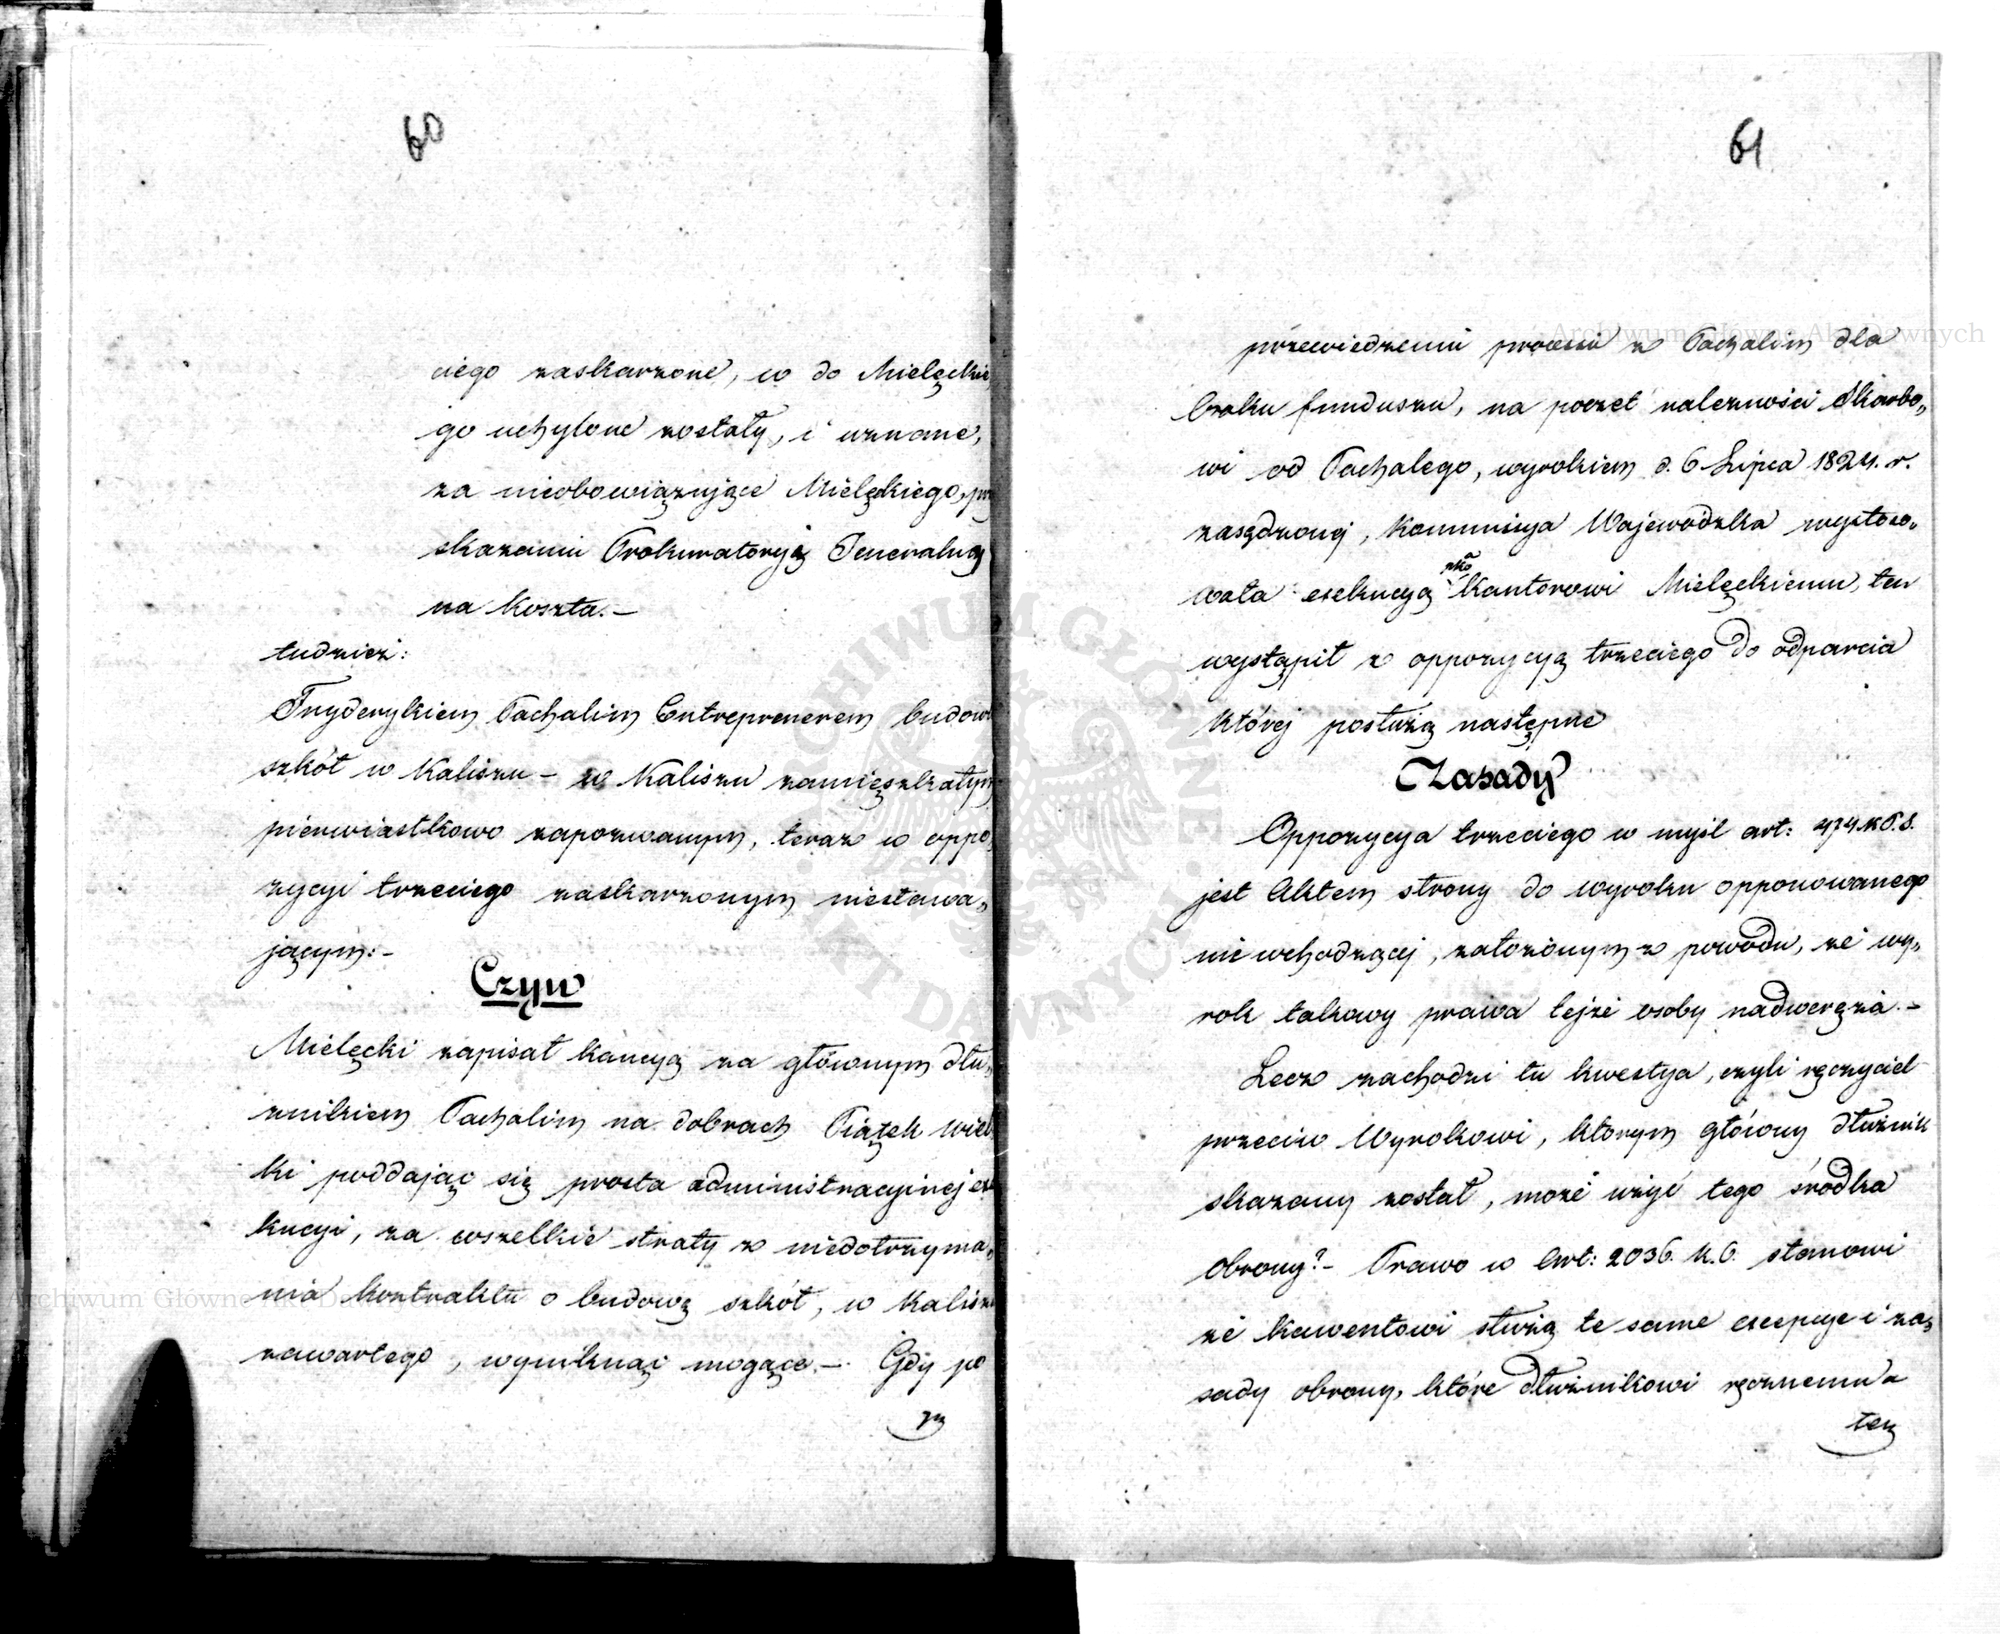 60
ciego zaskarzone, w do Mielęckie
go uchylone zostały, i uznane,
za nieobowiązujące Mielęckiego, prz
skazaniu Prokuratoryą Generalną
na koszta.—
tudzież:
Fryderykiem Pachalim Entreprenerem budowl
szkół w Kaliszu – w Kaliszu zamięszkałym
pierwiastkowo zapozwanym, teraz w oppo
zycyi trzeciego zaskarzonym niestawa„
jącym:–
Czyn
Mielęcki zapisał kaucyą za głównym dłu„
znikiem Pachalim na dobrach Piątek wiel
ki poddając się prosta administracyinej exe
kucyi, za wszelkie straty z niedotrzyma„
nia kontraktu o budowę szkół, w Kalisz
zawartego, wyniknąć mogące.— Gdy po
prz
61
przewiedzeniu processu z Pachalim dla
braku funduszu, na poczet nalezności Skarbo„
wi od Pachalego, wyrokiem d. 6 Lipca 1824. r.
zasądzonej, Kommissya Wojewodzka wystoso„
wała exekucyą pko Kantorowi Mielęckiemu, ten
wystąpił z oppozycyą trzeciego do odparcia
której posłużą następne
Zasady
Oppozycya trzeciego w myśl art: 474 K.P.S.
jest Aktem strony do wyroku opponowanego
nie wchodzącej, założonym z powodu, że wy„
rok takowy prawa tejże osoby nadweręża.–
Lecz zachodzi tu kwestya, czyli ręczyciel
przeciw Wyrokowi, ktorym główny dłużnik
skazany został, może użyć tego środka
obrony?– Prawo w Art: 2036. K.C. stanowi
że kawentowi służą te same excepcye i za„
sady obrony, które dłużnikowi ręcznemu a
ten
Archiwum Główne Akt Dawnych